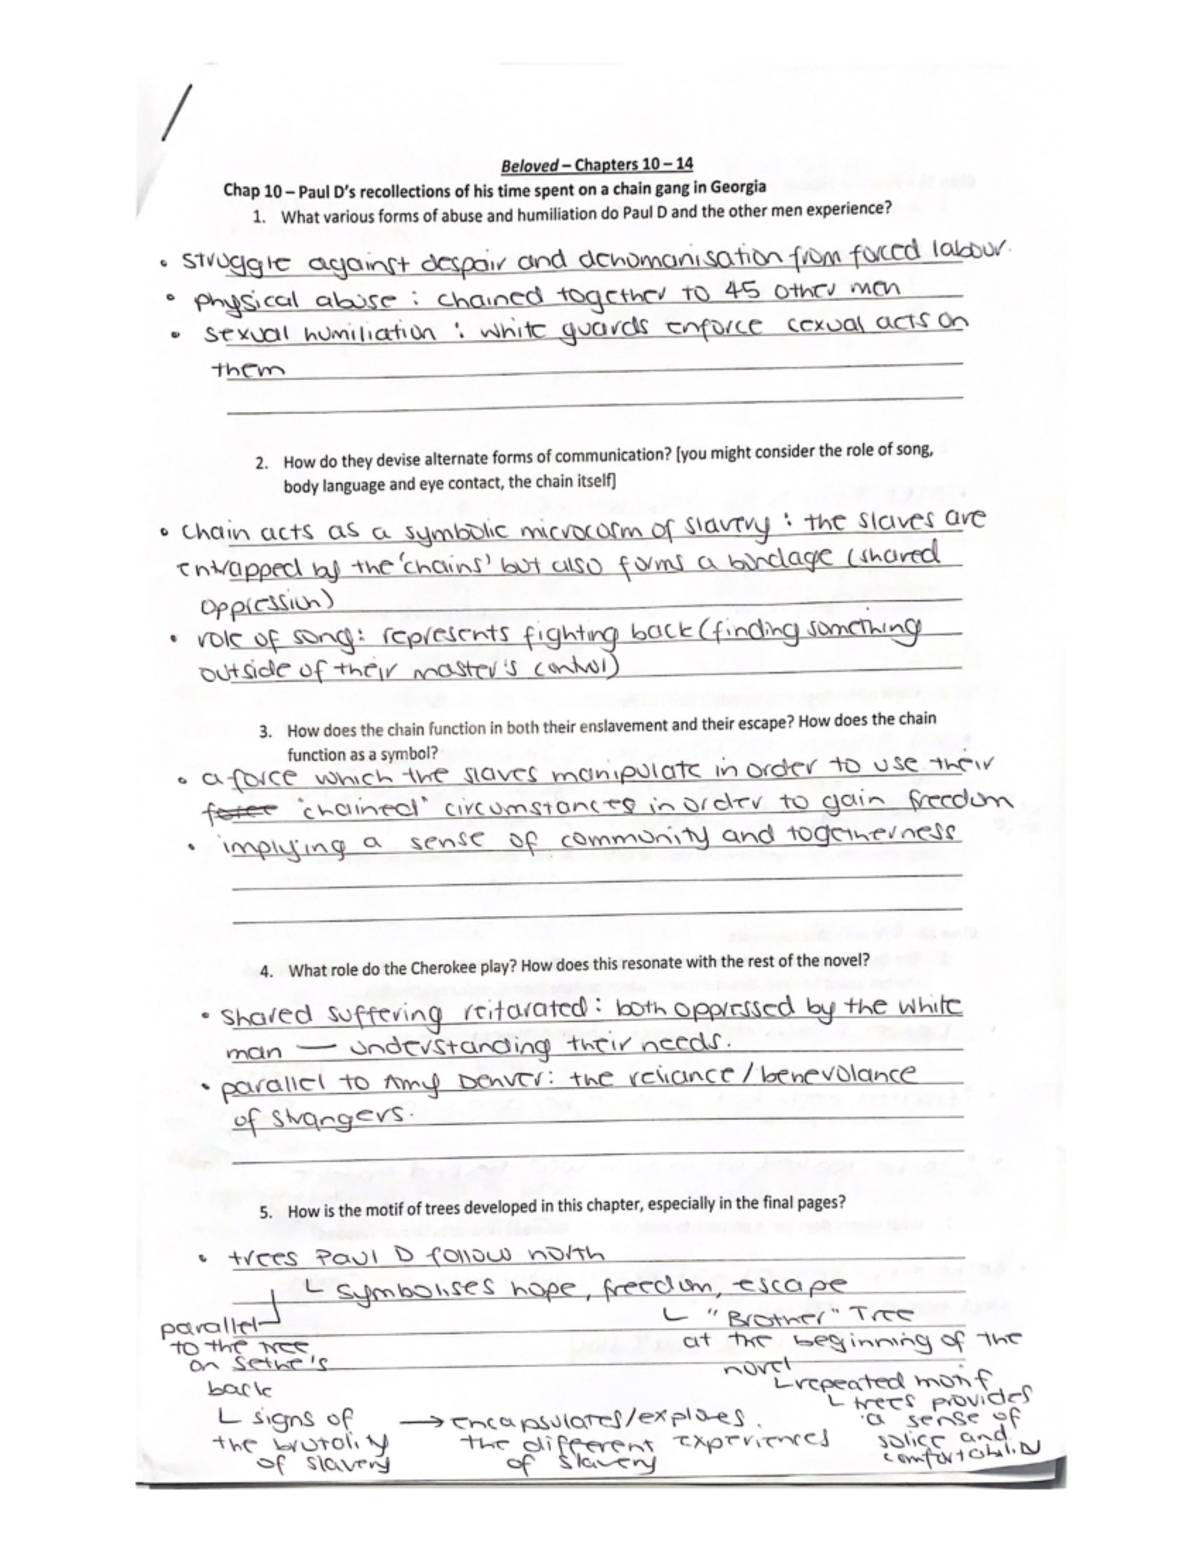 Beloved – Chapters 10 – 14
Chap 10 – Paul D's recollections of his time spent on a chain gang in Georgia
1. What various forms of abuse and humiliation do Paul D and the other men experience?
• struggle against despair and dehumanisation from forced labour.
• physical abuse : chained together to 45 other men
• sexual humiliation : white guards enforce sexual acts on
them
2. How do they devise alternate forms of communication? [you might consider the role of song,
body language and eye contact, the chain itself]
• chain acts as a symbolic microcosm of slavery : the slaves are
entrapped by the 'chains' but also forms a bondage (shared
oppression)
• role of song: represents fighting back (finding something
outside of their master's control)
3. How does the chain function in both their enslavement and their escape? How does the chain
function as a symbol?
• a force which the slaves manipulate in order to use their
force "chained" circumstances in order to gain freedom
• implying a sense of community and togetherness
4. What role do the Cherokee play? How does this resonate with the rest of the novel?
• shared suffering reitarated : both oppressed by the white
man — understanding their needs.
• parallel to Amy Denver: the reliance / benevolance
of strangers.
5. How is the motif of trees developed in this chapter, especially in the final pages?
• trees Paul D follow north
└ symbolises hope, freedom, escape
parallel
└ "Brother" Tree
to the tree
at the beginning of the
on Sethe's
novel
back
└ repeated motif
└ trees provides
└ signs of
→ encapsulates/explores
a sense of
the brutality
the different experiences
solice and
of slavery
of slavery
comfortability